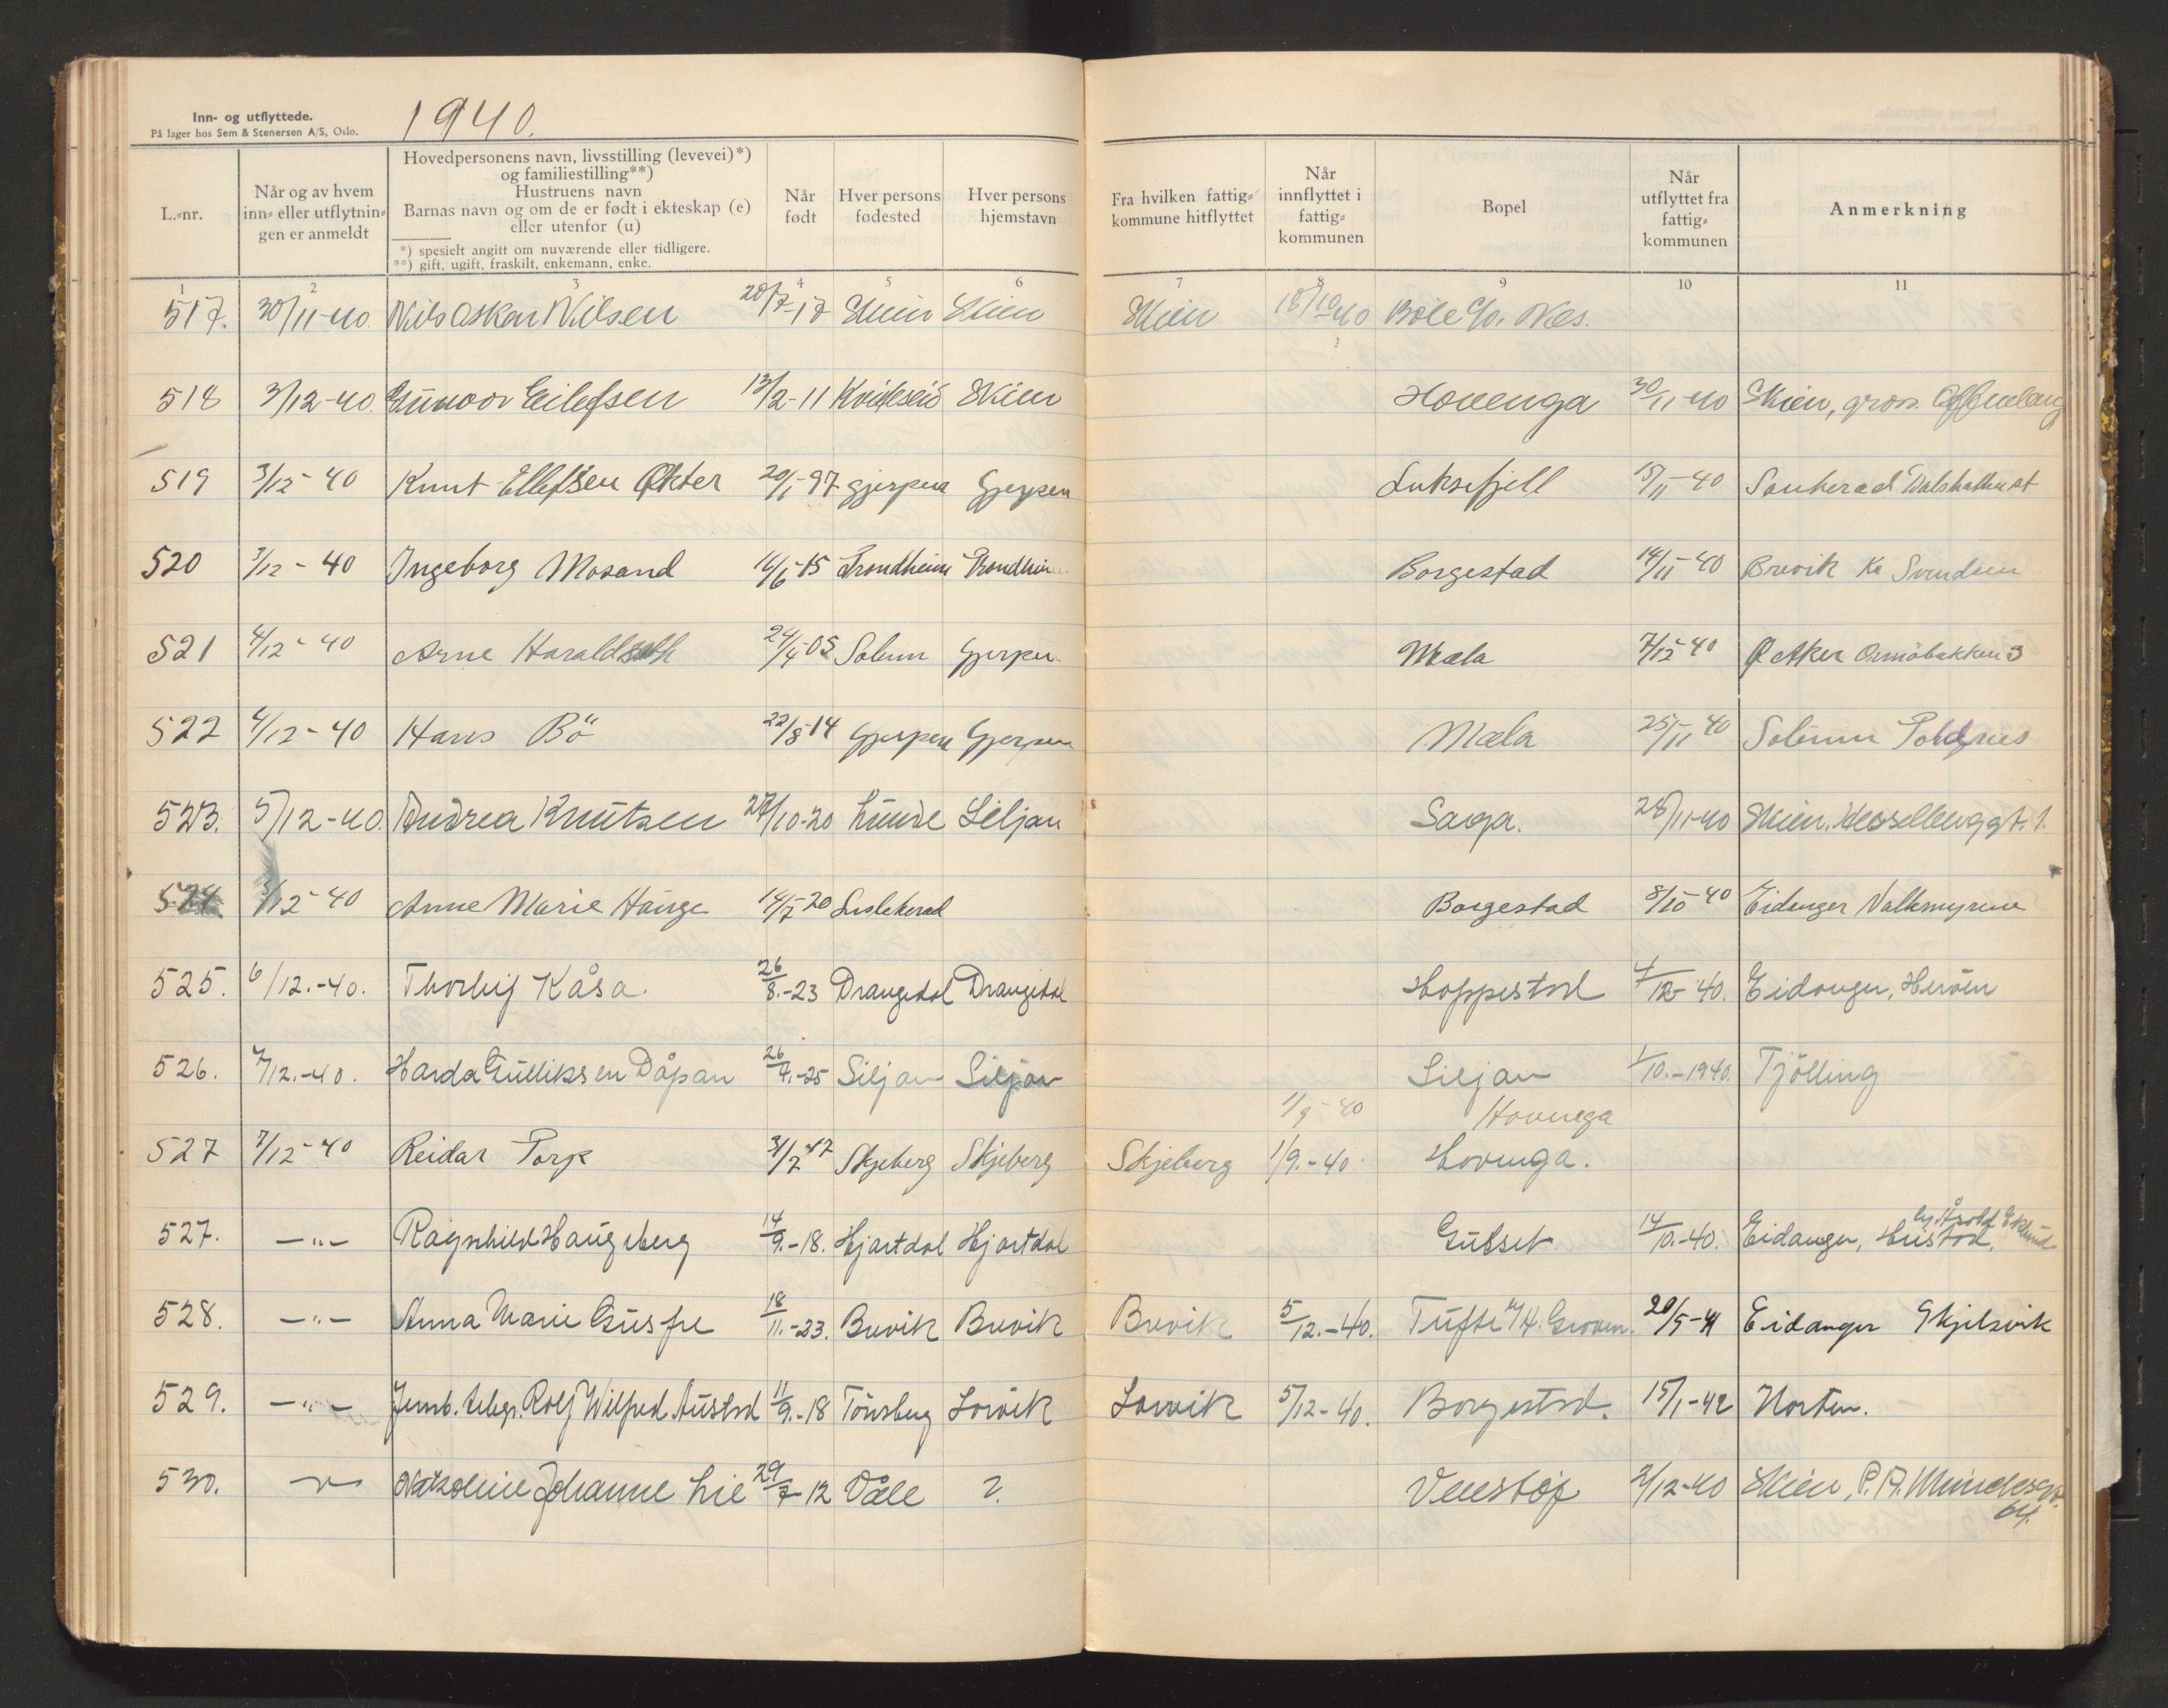 Inn- og utflyttede.
På lager hos Sem & Stenersen A/S, Oslo.
1940.
L.-nr.
Når og av hvem inn- eller utflytnin- gen er anmeldt
Hovedpersonens navn, livsstilling (levevei)*)
og familiestilling**)
Hustruens navn
Barnas navn og om de er født i ekteskap (e)
eller utenfor (u)
*) spesielt angitt om nuværende eller tidligere.
**) gift, ugift, fraskilt, enkemann, enke.
Når født
Hver persons fødested
Hver persons hjemstavn
Fra hvilken fattig- kommune hitflyttet
Når innflyttet i fattig- kommunen
Bopel
Når utflyttet fra fattig- kommunen
Anmerkning
1 2 3 4 5 6 7 8 9 10 11
517. 30/11-40. Nils Oskar Nilsen 20/7-17 Skien Skien Skien 18/10-40 Böle c/o. Næs.
518 3/12-40. Gunvor Eilefsen 13/2-11 Kviteseid Skien Hovenga 30/11-40 Skien, gros.
519 3/12-40 Knut Ellefsen Økter 20/1-97 Gjerpen Gjerpen Luksefjell 15/11-40 Sauherad
520 3/12-40 Ingeborg Mosand 16/6-15 Trondheim Trondheim Borgestad 14/11-40 Brevik Kr Svendsen
521 4/12-40 Arne Haraldseth 24/4-05 Solum Gjerpen Mæla 7/12-40 Ø Aker Ormöbakken 3
522 4/12-40 Hans Bö 22/8-14 Gjerpen Gjerpen Mæla 25/11 40 Solum
523. 5/12-40. Andrea Knutsen 27/10-20 Lunde Siljan Saga. 28/11-40 Skien, Hesselberggt. 1.
524. 5/12-40 Anne Marie Hauge 14/7-20 Lisleherad Borgestad 8/10-40 Eidanger Valkmyrene
525. 6/12.-40. Thorleif Kåsa 26/8.-23 Drangedal Drangedal Hoppestad 4/12-40. Eidanger, Heröen
526. 7/12.-40. Harda Gulliksen Dåpan 26/4.-25 Siljan Siljan Siljan 1/10.-1940. Tjölling
1/9-40 Hovenga
527 7/12-40 Reidar Torp 3/7-17 Skjeberg Skjeberg Skjeberg 1/9.-40. Hovenga.
527. -"- Ragnhild Haugberg 14/9.-18. Hjartdal Hjartdal Gulset 14/10.-40. Eidanger,
528. -"- Anna Marie Gusfre 18/11.-23. Brevik Brevik Brevik 5/12.-40. Tufte v/H. Groven. 20/5-41 Eidanger Skjelsvik
529. -"- Jernb. arbr. Rolf Wilfred Austad 11/9.-18 Tönsberg Larvik Larvik 5/12-40. Borgestad. 15/1-42 Horten.
530. -"- Johanne Lie 29/7-12 Våle ?. Venstöp 2/12-40 Skien, P. A. Munchesgt. 64.